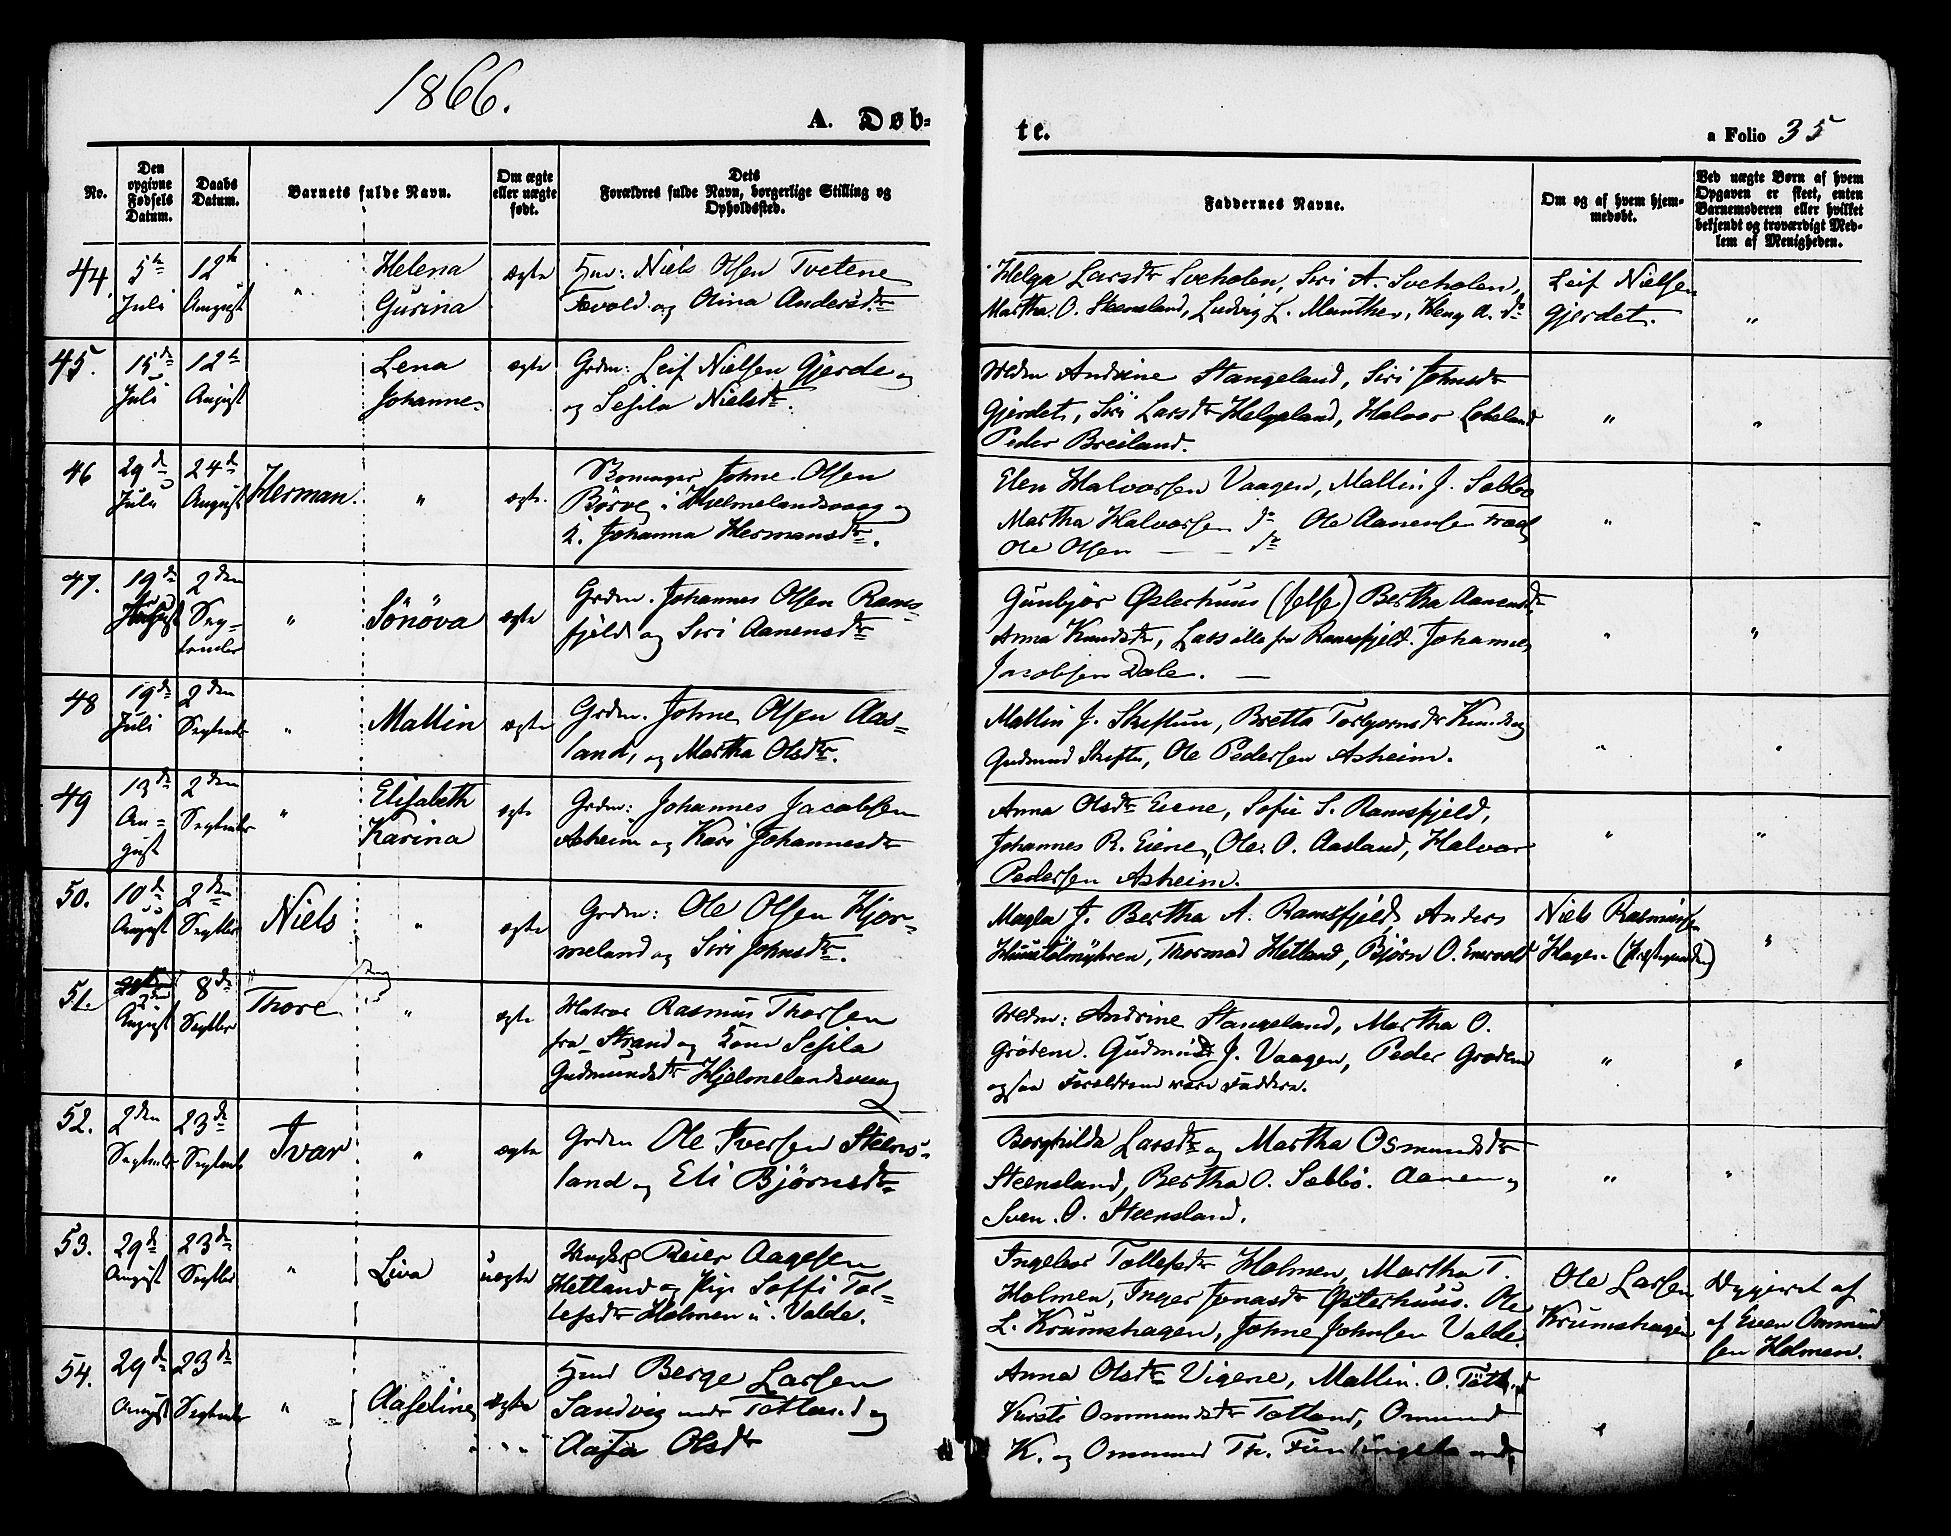 1866.
A. Døb-
te.
a Folio 35
No.
Den opgivne Fødsels Datum.
Daabs Datum.
Barnets fulde Navn.
Om ægte eller uægte født.
Dets
Forældres fulde Navn, borgerlige Stilling og
Opholdssted.
Faddernes Navne.
Om og af hvem hjem-
medøbt.
Ved uægte Børn af hvem
Opgaven er skeet, enten
Barnemoderen eller hvilket
bekjendt og troværdigt Med-
lem af Menigheden.
44. 5te Juli 12te August " Helena Gurina ægte
Hmd: Niels Olsen Tvetene
og Olina Andersdtr
Helga Larsdtr Sveholen, Siri A. Sveholen,
Martha O. Steensland, Ludvig L. Manthey, A. do
Leif Nielsen
Gjerdet.
"
45. 15de Juli 12te August Lena Johanne ægte
Grdm: Leif Nielsen Gjerde
og Sesila Nielsdtr.
Andrine Stangeland, Siri Johnsdtr
Gjerdet, Siri Larsdtr Helgeland, Halvor
Peder Breiland.
" "
46 29de Juli 24de August Herman " ægte
Johne Olsen
Børve i Hjelmelandsvaag og
Johanna Hermansdtr.
Elen Halvorsen Vaagen, Mallin J. Sæbbø
Martha Halvorsen do Ole Aanensen
Ole Olsen — — do
" "
47. 19de August 2den September " Sönöva ægte
Grdm. Johannes Olsen Rams-
fjeld og Siri Aanensdtr
Gunbjør Østerhuus (selv) Bertha Aanensdtr
Anna Knudsdtr, Lars alle fra Ramsfjeld. Johannes
Jacobsen Dale. —
" "
48 19de Juli 2den September " Mallin ægte
Grdm. Johne Olsen Aas-
land, og Martha Olsdtr.
Mallin J. Skiftun, Bretta Torbjørnsdtr
Gudmund Skiftu, Ole Pedersen Asheim.
" "
49 13de August 2den September " Elisabeth Karina ægte
Grdm: Johannes Jacobsen
Asheim og Kari Johannesdtr
Anna Olsdtr Eiene, Sofie S. Ramsfjeld,
Johannes R. Eiene, Ole O. Aasland, Halvor
Pedersen Asheim.
" "
50. 10de August 2den Septbr Niels " ægte
Grdm: Ole Olsen Hjor-
meland og Siri Johnsdtr.
Magla J. Bertha A. Ramsfjeld, Anders
Thormod Hetland, Bjørn O.
Niels Rasmussen
Hagen
"
51. 2den August 8de Septbr Thore " ægte
Matros Rasmus Thorsen
fra Strand og Kone Sesila
Gudmundsdtr Hjelmelandsvaag
Andrine Stangeland, Martha O.
Grødem. Gudmund J. Vaagen, Peder Grødem
ogsaa Forældrene vare Faddere.
" "
52. 2den September 23de September Ivar " ægte
Grdm Ole Iversen Steens-
land og Eli Bjørnsdtr
Berghilda Larsdtr og Martha Osmundsdtr
Steensland, Bertha O. Sæbbø. Aanen og
Sven O. Steensland.
" "
53. 29de August 23de Septbr " Liva uægte
Ungk Reier Aagesen
Hetland og Pige Soffi Tol-
lefsdtr Holmen u. Valde.
Ingebor Tollefsdtr Holmen, Martha T.
Holmen, Inger Jonasdtr Østerhuus. Ole
L. Krumshagen, Johne Johnsen Valde.
Ole Larsen
Krumshagen
Opgivet af
af Even Ommund
sen Holmen.
54. 29de August 23de September " Aaseline ægte
Hmd Berge Larsen
Sandvig under Tøtland og
Aasa Olsdtr
Anna Olsdtr Vigene, Mallin O. Tøtland
Kirsti Ommundsdtr Tøtland, Omund
K. og Ommund Th.
" "